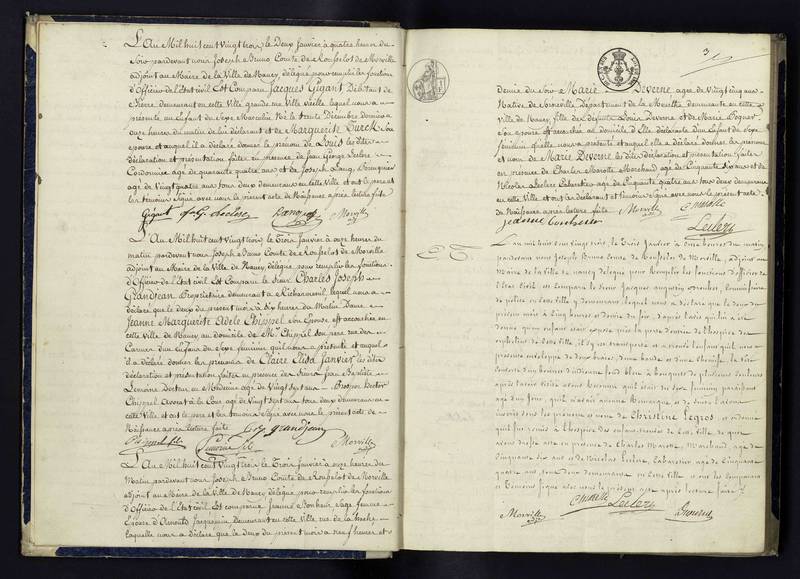 L'An Mil huit cent vingt trois, le Deux Janvier à quatre heures du
Soir pardevant nous Joseph Bruno Comte de Rousselot de Morville
adjoint au Maire de la Ville de Nancy, délégué pour remplir les fonctions
d'Officier de l'Etat civil Est Comparu Jacques Gigant Débitant de
Bierre demeurant en cette Ville grande rue Ville vieille lequel nous a
présenté un Enfant du Sexe Masculin Né le trente Décembre dernier à
onze heures du matin de lui déclarant et de Marguerite Turck Son
épouse et auquel il a déclaré donner le prénom de Louis les dites
déclaration et présentation faites en présence de Jean George Leclere
Cordonnier agé de quarante quatre ans et de Joseph Lang
agé de Vingt quatre ans tous deux demeurans en cette Ville et ont le pere et
les temoins signé avec nous le present acte de Naissance après lecture faite
Gigant J. G. Leclere Lang Morville
L'An Mil huit cent Vingt trois le Trois Janvier à onze heures du
matin pardevant nous Joseph Bruno Comte de Rousselot de Morville
adjoint au Maire de la Ville de Nancy, délégué pour remplir les fonctions
d'Officier de l'Etat civil Est Comparu le Sieur Charles Joseph
Grandjean Propriétaire demeurant à Richarmenil lequel nous a
déclaré que le Deux du présent mois à six heures du Matin Dame
Jeanne Marguerite Adele Chippel Son Epouse est accouchée en
cette Ville de Nancy au domicile de Mr. Chippel Son pere rue des
Carmes d'un Enfant du Sexe féminin qu'il nous a présenté et auquel
il a déclaré donner les prénoms de Claire Elisa Janvier les dites
déclaration et présentation faites en présence des Sieurs Jean Baptiste
Lemoine Docteur en Médecine agé de Vingt sept ans Prosper Hector
Chippel Avocat à la Cour agé de Vingt Sept ans tous deux demeurans en
cette Ville et ont le pere et les temoins signé avec nous le present acte de
Naissance après lecture faite Grandjean
Morville
L'An Mil huit cent Vingt trois le Trois Janvier à onze heures du
Matin pardevant nous Joseph Bruno Comte de Rousselot de Morville
adjoint au Maire de la Ville de Nancy délégué pour remplir les fonctions
d'Officier de l'Etat civil Est comparue Jeanne Bonheur Sage femme
Epouse d'Arnould Jacquemin, demeurant en cette Ville rue de la
laquelle nous a déclaré que le deux du présent mois à neuf heures et
3
demie du Soir Marie Deverne, agée de Vingt cinq ans
Native de Département de la Moselle demeurante en cette
Ville de Nancy, fille de défunts Louis Deverne et de Marie
Son épouse est accouchée au domicile d'Elle déclarante d'un Enfant du Sexe
féminin qu'elle nous a présenté et auquel elle a déclaré donner les prénom
et nom de Marie Deverne les dites déclaration et présentation faites
en présence de Charles Marotte Marchand agé de Cinquante Six ans et de
Nicolas Leclerc Cabaretier agé de Cinquante quatre ans tous deux demeurans
en cette Ville et ont les déclarant et temoins signé avec nous le present acte
de Naissance après lecture faite Morville CMarotte
Jeanne Bonheur Leclerc
E. T.
L'an mil huit cent vingt trois, le Trois Janvier à onze heures du matin,
pardevant nous Joseph Bruno Comte de Rousselot de Morville, adjoint au
Maire de la ville de Nancy délégué pour Remplir les fonctions d'officier de
l'Etat Civil, est comparu le Sieur Jacques Augustin Commissaire
de police en cette Ville y demeurant lequel nous a déclaré que le deux du
présent mois à Cinq heures et demie du Soir, d'après l'avis qu'il a été
donné qu'un enfant était exposé près la porte d'entrée de l'hospice des
orphelins de cette Ville, il s'y est transporté et a trouvé l'enfant qu'il nous
présente enveloppé de deux
après l'avoir visité avons reconnu qu'il était du sexe féminin paraissant
agé d'un Jour, qu'il n'avait aucune Remarque et de suite l'avons
inscrit sous les prénom et nom de Christine Legros et ordonné
qu'il fut remis à l'hospice des enfants trouvés de cette Ville, de quoi
avons dressé acte en présence de Charles Marotte, Marchand, agé de
Cinquante Six ans et de Nicolas Leclerc, Cabaretier agé de Cinquante
quatre ans, tous deux demeurans en cette Ville, et ont les comparant
et Temoins signé avec nous le présent acte après lecture faite
CMarotte Leclerc
Morville